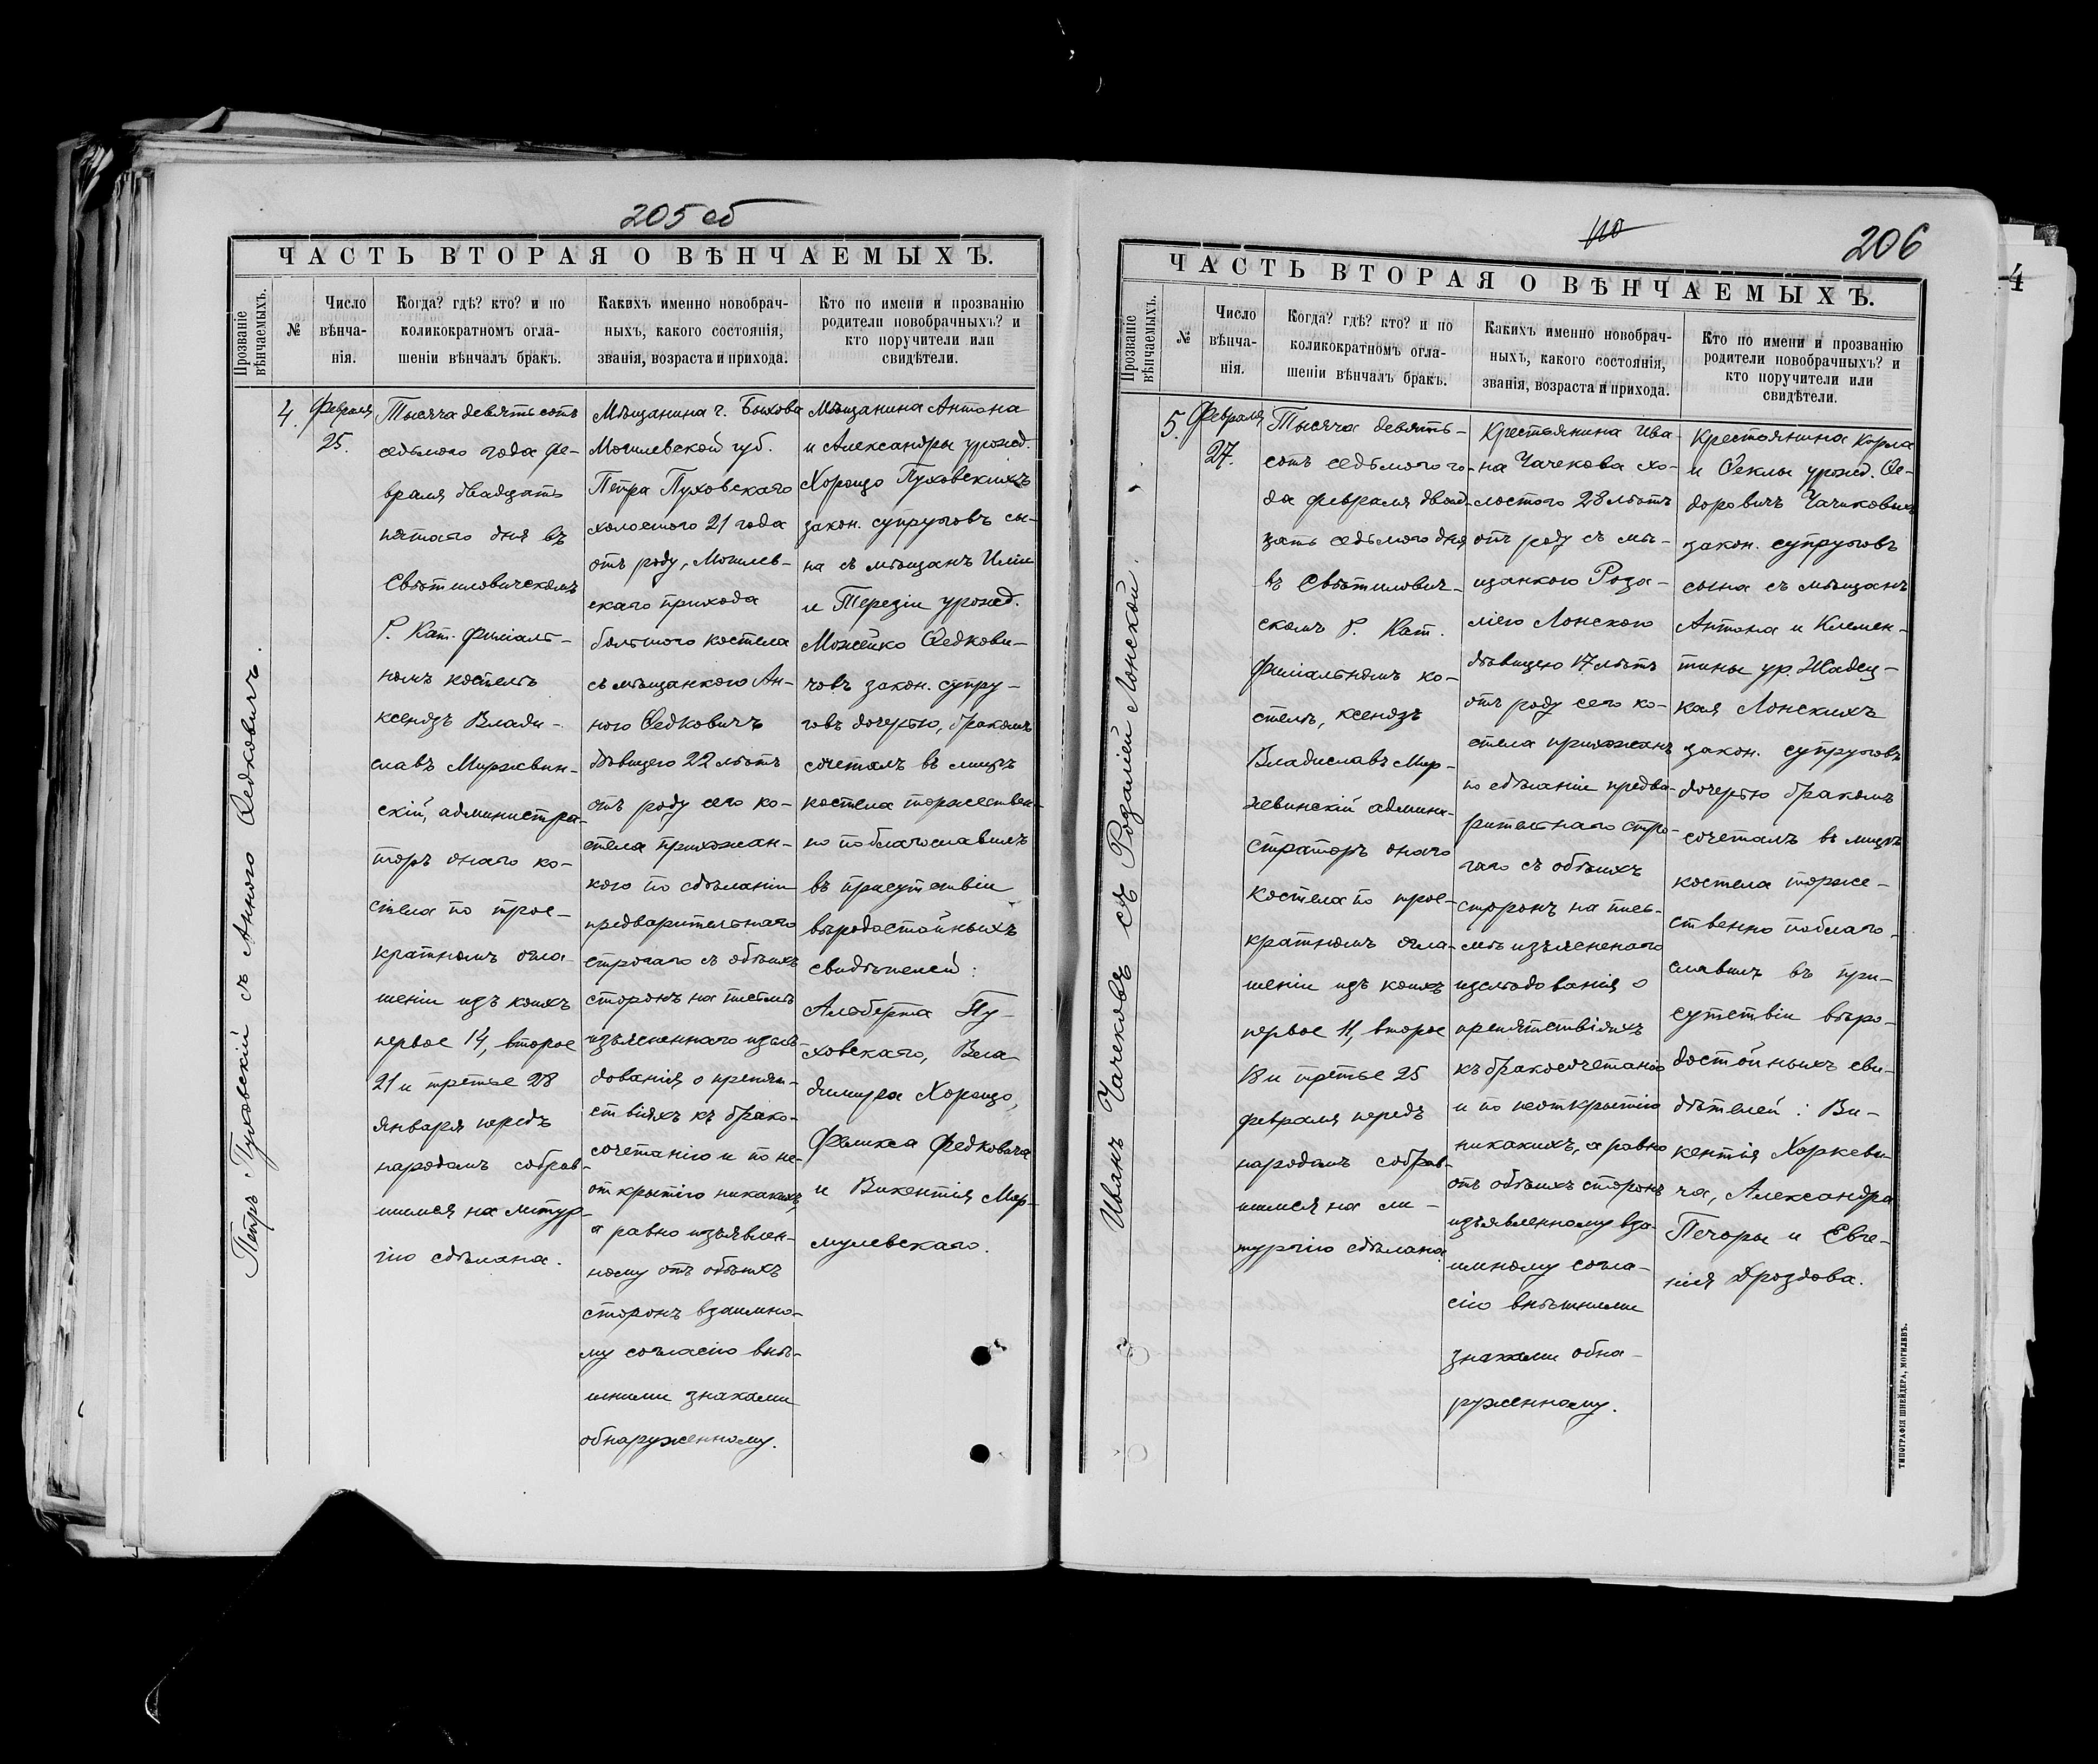 205 об
ЧАСТЬ ВТОРАЯ О ВѢНЧАЕМЫХЪ.
Прозваніе
вѣнчаемыхъ.
№
Число
вѣнча-
нія.
Когда? гдѣ? кто? и по
коликократномъ огла-
шеніи вѣнчалъ бракъ.
Какихъ именно новобрач-
ныхъ, какого состоянія,
званія, возраста и прихода.
Кто по имени и прозванію
родители новобрачныхъ? и
кто поручители или
свидѣтели.
Петръ Пуховскій съ Анною Ѳедковичъ.
4.
Февраля
25.
Тысяча девятьсотъ
седьмого года фе-
враля двадцать
пятаго дня въ
Свѣтиловическомъ
Р. Кат. филіаль-
номъ костелѣ
ксендзъ Влади-
славъ Миржвин-
скій, администра-
торъ онаго ко-
стела по трое-
кратномъ огла-
шеніи изъ коихъ
первое 14, второе
21 и третье 28
января передъ
народомъ собрав-
шимся на литур-
гію сдѣлана.
Мѣщанина г. Быхова
Могилевской губ.
Петра Пуховскаго
холостого 21 года
отъ роду, Могилев-
скаго прихода
большого костела
съ мѣщанкою Ан-
ною Ѳедковичъ
дѣвицею 22 лѣтъ
отъ роду сего ко-
стела прихожан-
кою по сдѣланіи
предварительнаго
строгаго съ обѣихъ
сторонъ на письмѣ
изъясненнаго изслѣ-
дованія о препят-
ствіяхъ къ брако-
сочетанію и по не-
открытію никакихъ,
а равно изъявлен-
ному отъ обѣихъ
сторонъ взаимно-
му согласію внѣ-
шними знаками
обнаруженному.
Мѣщанина Антона
и Александры урожд.
Хорощо Пуховскихъ
закон. супруговъ сы-
на съ мѣщанъ Иліи
и Терезіи урожд.
Можейко Ѳедкови-
човъ закон. супру-
говъ дочерью, бракомъ
сочеталъ въ лицѣ
костела торжествен-
но поблагославилъ
въ присутствіи
вѣродостойныхъ
свидѣтелей:
Альберта Пу-
ховскаго, Вла-
димира Хорощо,
Феликса Федковича
и Викентія Мар-
мулевскаго.
206
ЧАСТЬ ВТОРАЯ О ВѢНЧАЕМЫХЪ.
Прозваніе
вѣнчаемыхъ.
№
Число
вѣнча-
нія.
Когда? гдѣ? кто? и по
коликократномъ огла-
шеніи вѣнчалъ бракъ.
Какихъ именно новобрач-
ныхъ, какого состоянія,
званія, возраста и прихода.
Кто по имени и прозванію
родители новобрачныхъ? и
кто поручители или
свидѣтели.
Иванъ Чачековъ съ Розаліей Лонской.
5.
Февраля
27.
Тысяча девять-
сотъ седьмого го-
да февраля двад-
цать седьмого дня
въ Свѣтилович-
скомъ Р. Кат.
филіальномъ ко-
стелѣ, ксендзъ
Владиславъ Мир-
жевинскій админи-
страторъ онаго
костела по трое-
кратномъ огла-
шеніи изъ коихъ
первое 11, второе
18 и третье 25
февраля передъ
народомъ собрав-
шимся на ли-
тургію сдѣлана.
Крестьянина Ива-
на Чачекова хо-
лостого 28 лѣтъ
отъ роду съ мѣ-
щанкою Роза-
ліею Лонскою
дѣвицею 17 лѣтъ
отъ роду сего ко-
стела прихожанъ
по сдѣланіи предва-
рительнаго стро-
гаго съ обѣихъ
сторонъ на пись-
мѣ изъясненаго
изслѣдованія о
препятствіяхъ
къ бракосочетанію
и по неоткрытію
никакихъ, а равно
отъ обѣихъ сторонъ
изъявленному вза-
имному согла-
сію внѣшними
знаками обна-
руженному.
Крестьянина Карла
и Ѳеклы урожд. Ѳе-
доровичъ Чачиковыхъ
закон. супруговъ
сына съ мѣщанъ
Антона и Клемен-
тины ур. Жадец-
кая Лонскихъ
закон. супруговъ
дочерью бракомъ
сочеталъ въ лицѣ
костела торже-
ственно поблаго-
славилъ въ при-
сутствіи вѣро-
достойныхъ сви-
дѣтелей: Ви-
кентія Харкеви-
ча, Александра
Печоры и Евге-
нія Дроздова.
ТИПОГРАФІЯ ШНЕЙДЕРА, МОГИЛЕВЪ.
4